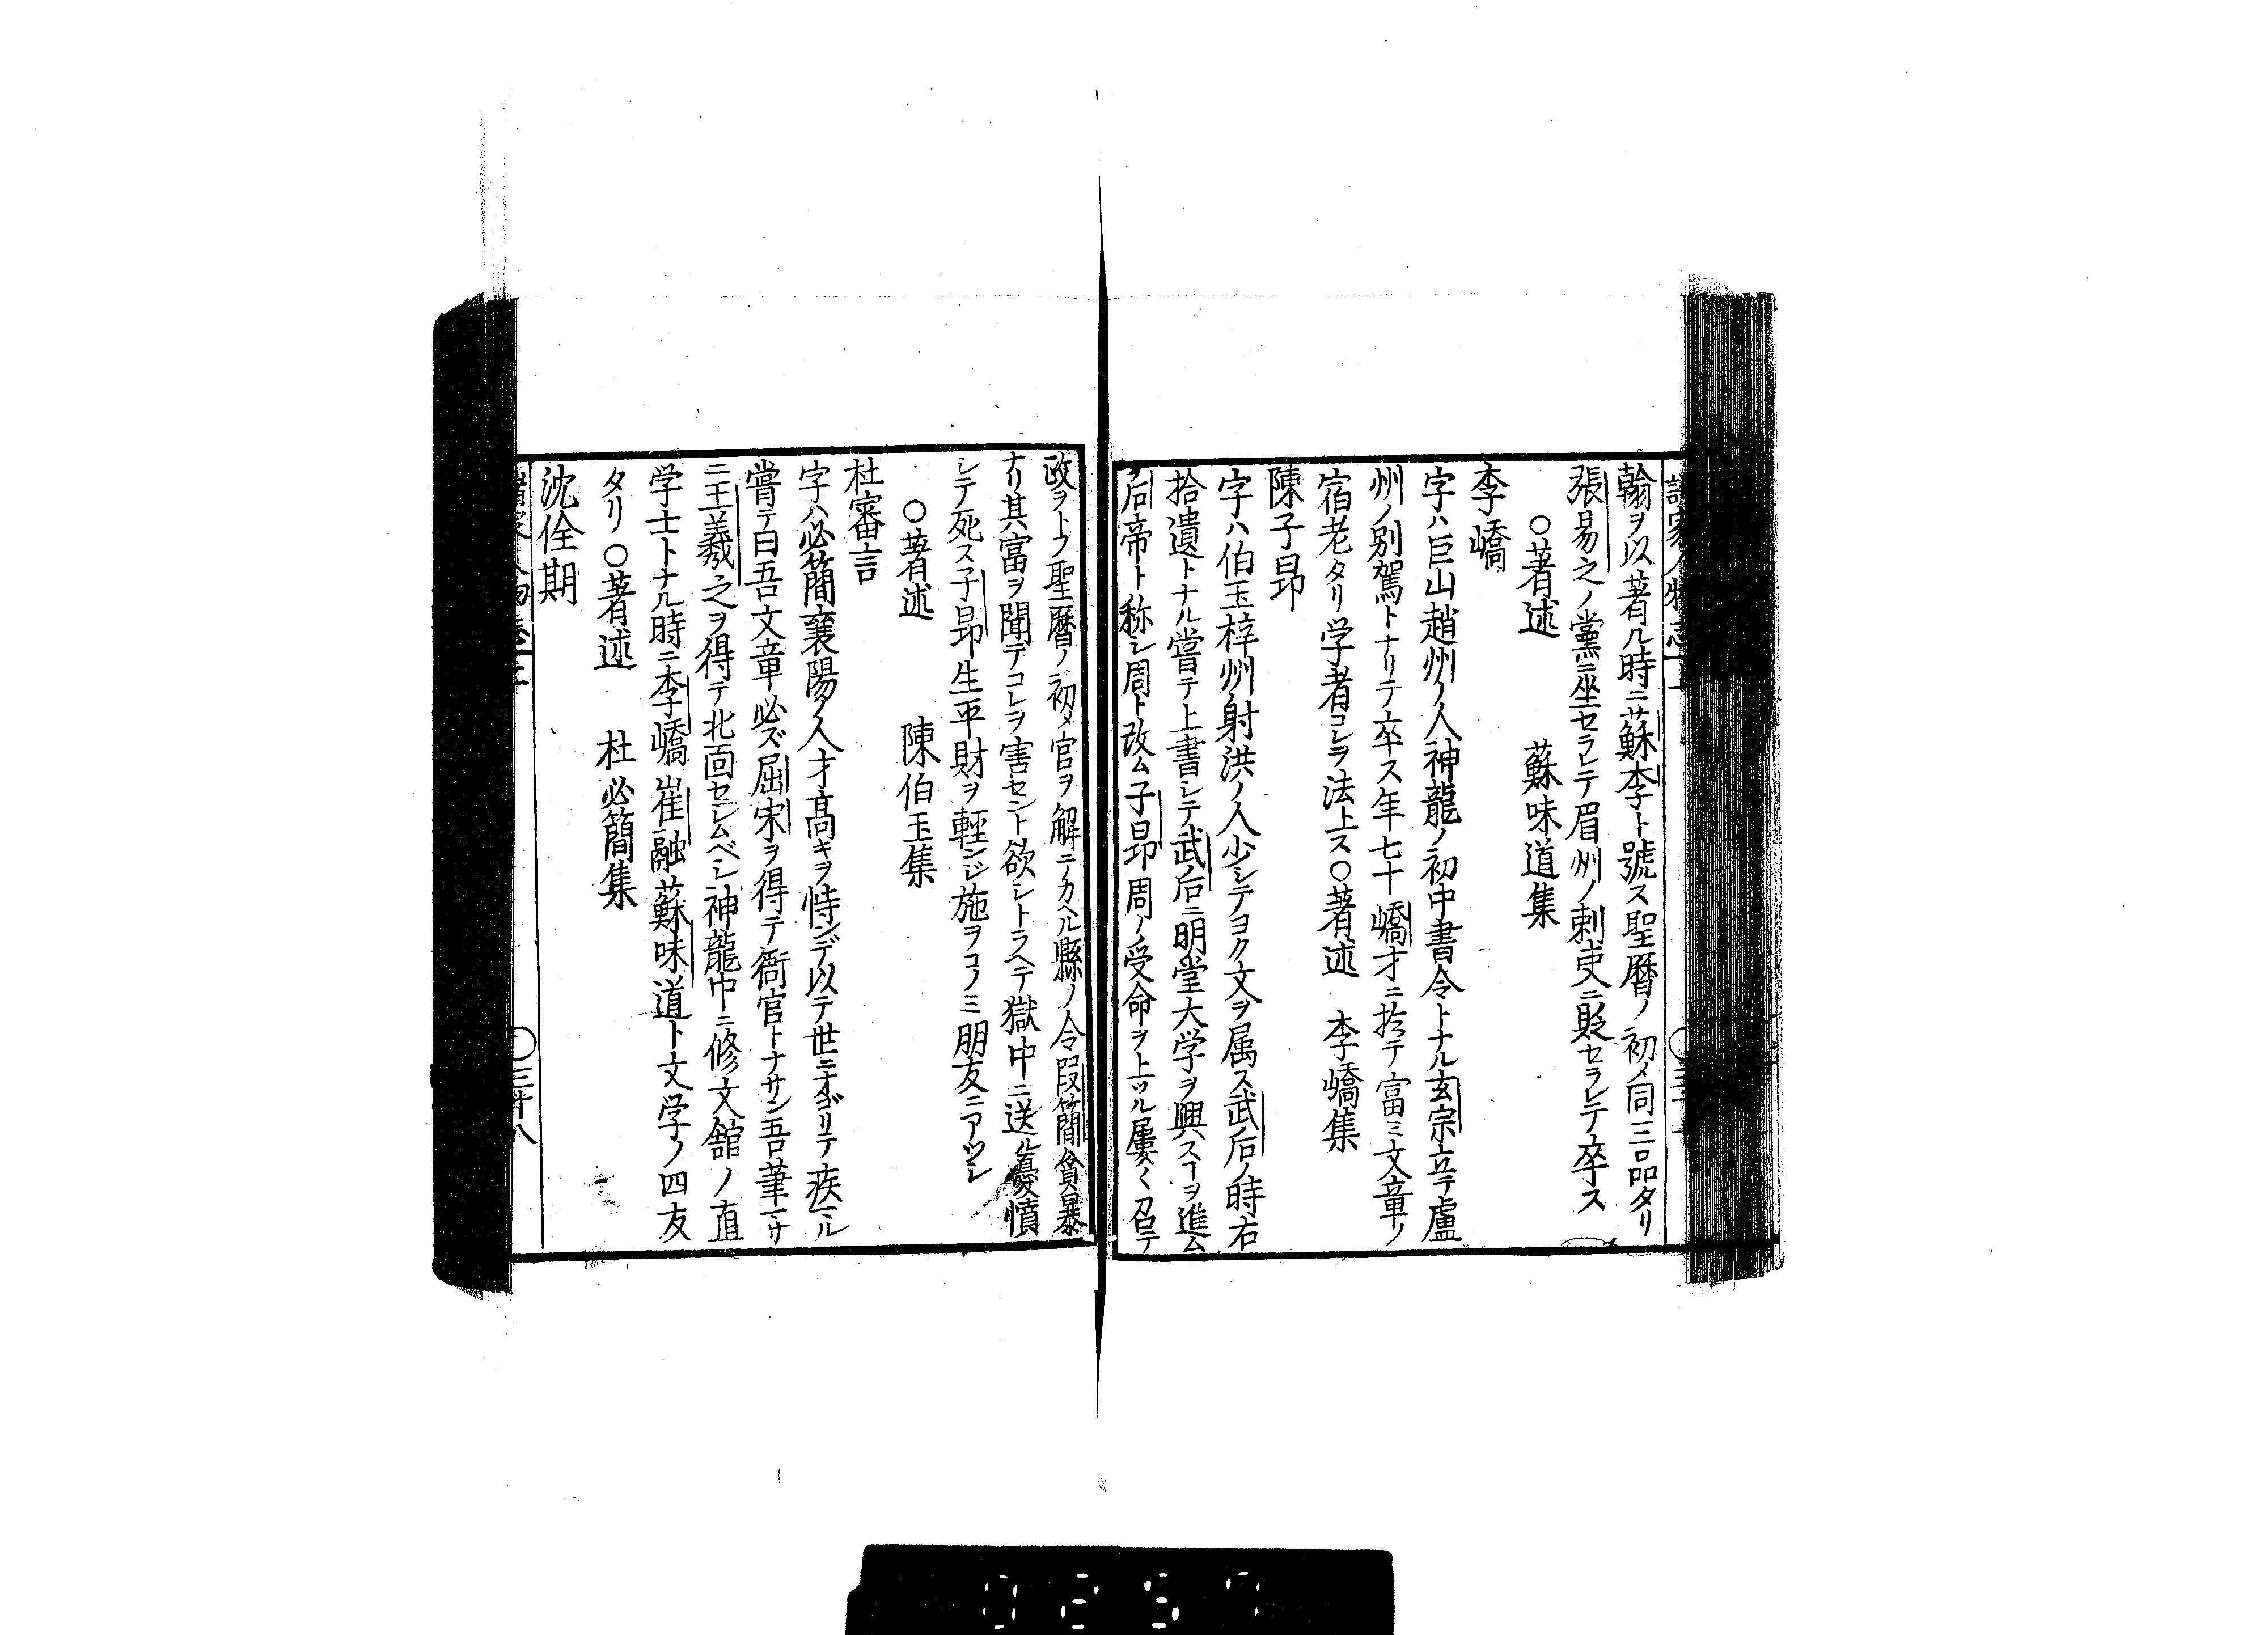 翰ヲ以著ル時ニ蘇李ト號ス聖曆ノ初メ同三品タリ
張易之ノ黨ニ坐セラレテ眉州ノ刺吏ニ貶セラレテ卒ス
○著述 蘇味道集
李嶠
字ハ巨山趙州ノ人神龍ノ初中書令トナル玄宗立テ盧
州ノ別駕トナリテ卒ス年七十嶠才ニ於テ富ミ文章ノ
宿老タリ学者コレヲ法上ス○著述 李嶠集
陳子昻
字ハ伯玉梓州射洪ノ人少シテヨク文ヲ属ス武后ノ時右
拾遺トナル嘗テ上書シテ武后ニ明堂大学ヲ興スヿヲ進ム
后帝ト称シ周ト改ム子昻周ノ受命ヲ上ツル屢〱召テ
政ヲトフ聖曆ノ初メ官ヲ解テカヘル縣ノ令段簡貪暴
ナリ其富ヲ聞テコレヲ害セント欲シトラヘテ獄中ニ送ル憂憤
シテ死ス子昻生平財ヲ輕ンジ施ヲコノミ朋友ニアツシ
○著述 陳伯玉集
杜審言
字ハ必簡襄陽ノ人才高キヲ恃ンデ以テ世ニオゴリテ疾マル
嘗テ曰吾文章必ズ屈宋ヲ得テ衙官トナサン吾筆マサ
ニ王羲之ヲ得テ北面セシムベシ神龍中ニ修文館ノ直
学士トナル時ニ李嶠崔融蘇味道ト文学ノ四友
タリ○著述 杜必簡集
沈佺期
○三十八